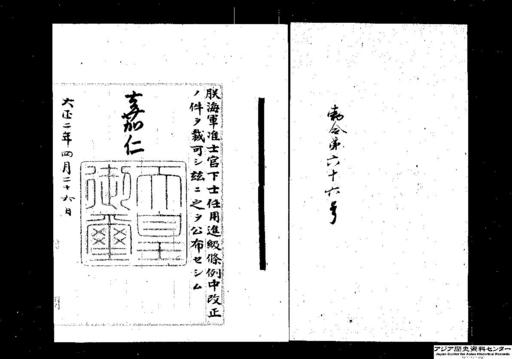 勅令第六十六号
朕海軍准士官下士任用進級條例中改正
ノ件ヲ裁可シ玆ニ之ヲ公布セシム
嘉仁
天皇
御璽
大正二年四月二十六日
アジア歴史資料センター
Japan Center for Asian Historical Records